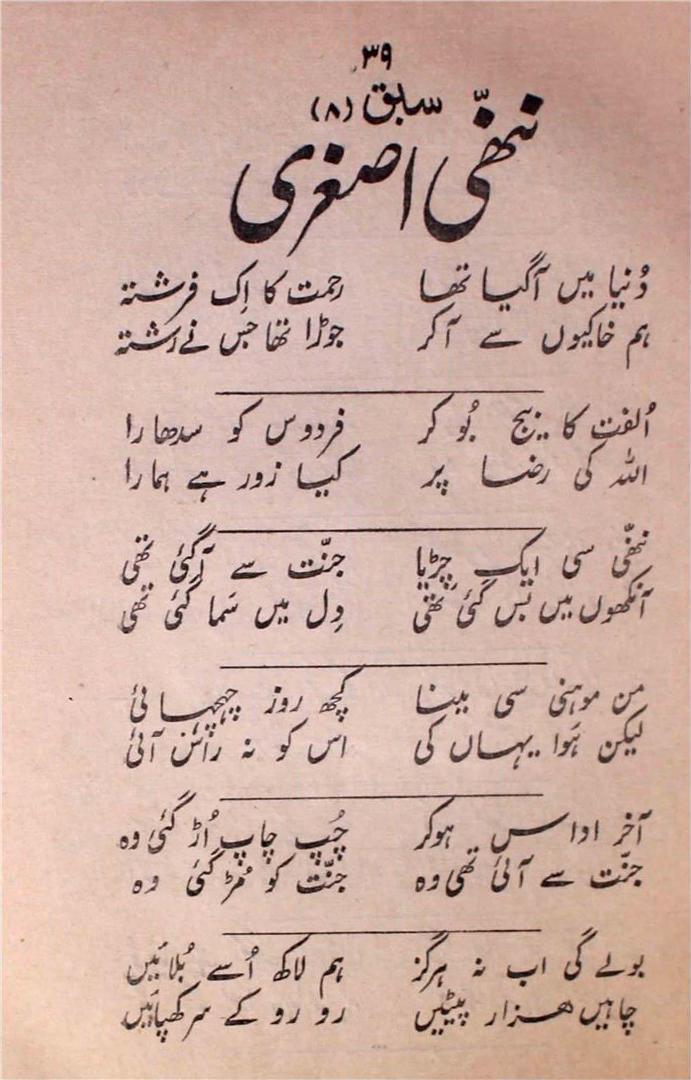 ۳۹
سبق (۸)
ننھّی اصغری
دُنیا میں آگیا تھا رحمت کا اِک فرشتہ
ہم خاکیوں سے آکر جوڑا تھا جس نے رشتہ
اُلفت کا بیج بُو کر فردوس کو سدھارا
اللہ کی رضا پر کیا زور ہے ہمارا
ننھّی سی ایک چڑیا جنّت سے آگئی تھی
آنکھوں میں بس گئی تھی دِل میں سَما گئی تھی
من موہنی سی مینا کچھ روز چہچہائی
لیکن ہَوا یہاں کی اس کو نہ راس آئی
آخر اداس ہوکر چُپ چاپ اُڑ گئی وہ
جنّت سے آئی تھی وہ جنّت کو مُڑ گئی وہ
بولے گی اب نہ ہرگز ہم لاکھ اُسے بُلائیں
چاہیں ہزار پیٹیں رو رو کے سر کھپائیں